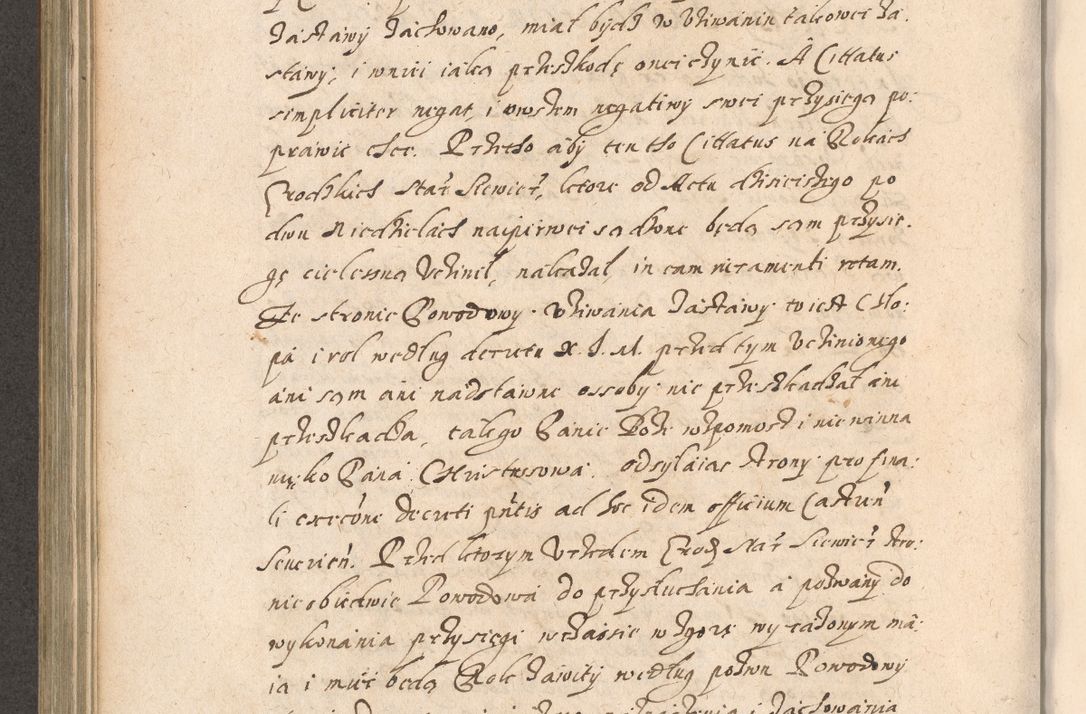 zastawy zachowano, miał bydz w vżiwaniu takowei za:
stawy, i wniei iaką przeszkodę onei czynić. A Cittatus
simpliciter negat, i owszem negatiwy swei przysięgą po:
prawić chce. Przeto aby ten tho Cittatus na Rokach
Grodzkich Star Siewier, ktore od Actu dzisieiszego po
dwu Niedzielach naipirwei sądzone będą sam przysię:
gę cielesną Vczinił, nakazał, in eam iuramenti rotam.
Że stronie Powodowy vżiwania Zastawy to iest Chło:
pa i rol według decretu X. J. M. przed tym Vczinionego
ani sam ani nadstawne ossoby nie przeszkadzał ani
przeszkadza, takego Panie Boże wspomosz i niewinna
męko Pana Christusowa. odsyłaiąc strony pro fina:
li exećone decreti pńtis ad hoc idem officium Castreń
Seuerień. Przed ktorym Vrzedem Grodz Star Siewier stro:
nie obiedwie Powodowa do przysłuchania a pozwany do
wykonania przysięgi w czassie w zgorę wyrażonym má:
ia i mieć będą Rok zawity według pozwu Powodowy